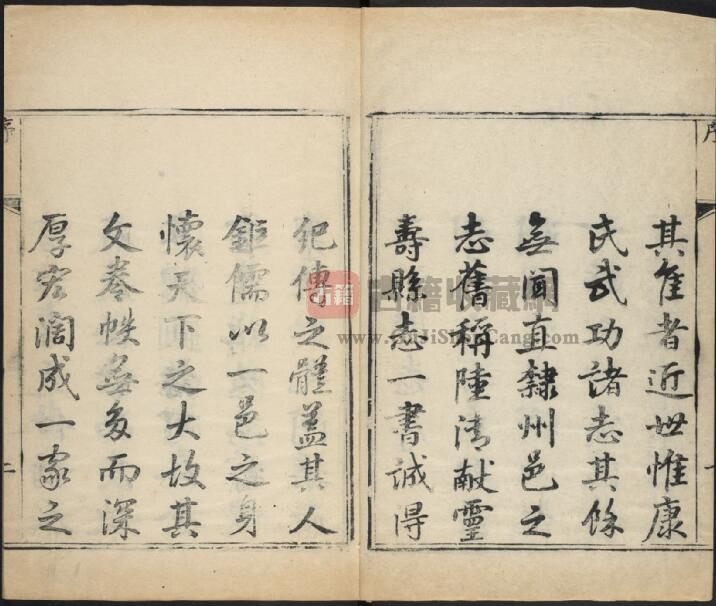 序
其隹者近世惟康
氏武功諸志其餘
無聞直隸州邑之
志舊稱陸清獻靈
壽縣志一書誠得
一
紀傳之體蓋其人
鉅儒以一邑之身
懷天下之大故其
文卷帙無多而深
厚宏濶成一家之
序
二
古籍
古籍收藏网
www.GuJiShouCang.com